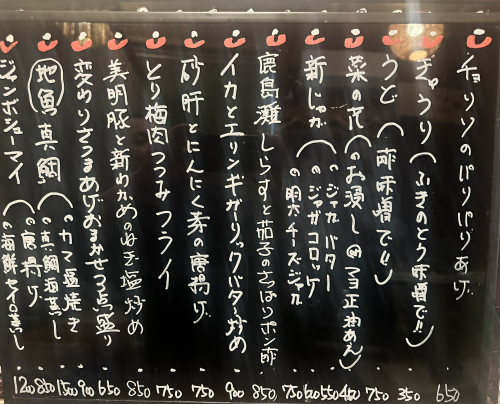 チョリソのパリパリあげ
きゅうり(ふきのとう味噌で!!)
うど(酢味噌で!!)
菜の花(●お浸し ●マヨ正油あん)
新じゃが
●ジャガバター
●ジャガコロッケ
●明太チーズジャガ
鹿島灘しらすと茄子のさっぱりポン酢
イカとエリンギガーリックバター炒め
砂肝とにんにく芽の唐揚げ
とり梅肉つつみフライ
美明豚と新わかめのねぎ塩炒め
変わりさつまあげおまかせ3点盛り
地魚 真鯛
●カマ塩焼き
●真鯛酒蒸し
●唐揚げ
ジャンボシューマイ(●海鮮セイロ蒸し
650
350
750
550
600
750
850
900
750
750
850
650
900
1500
850
1200